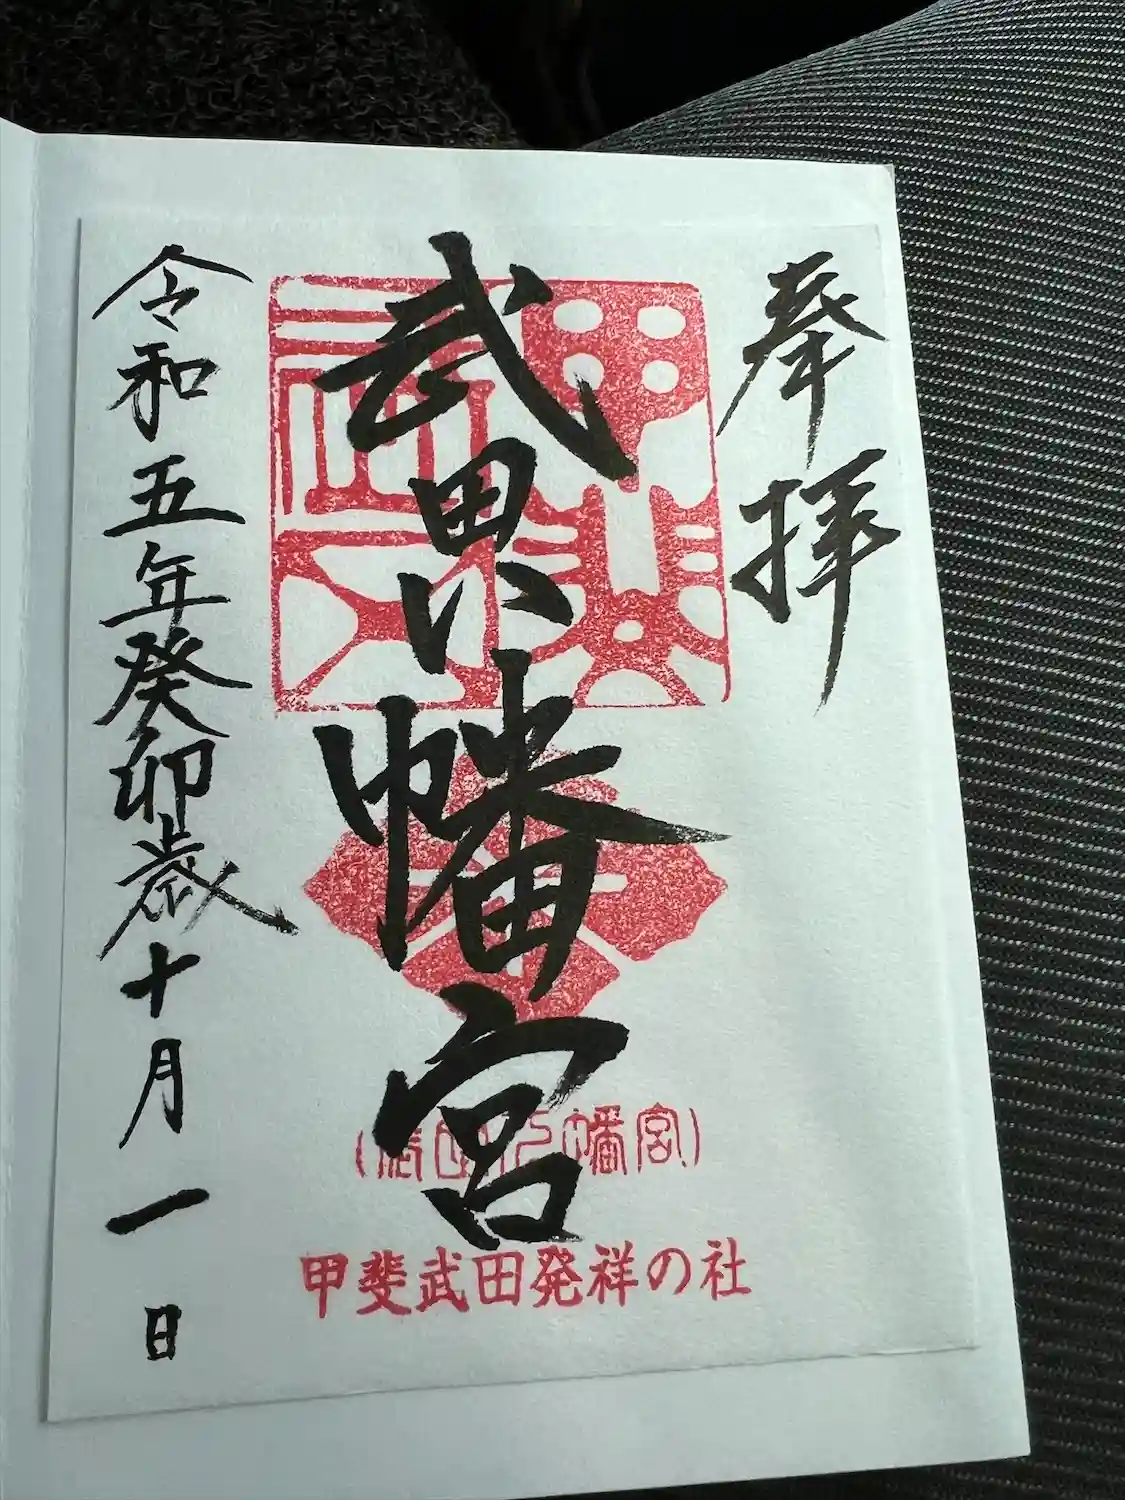 奉拝
武田八幡宮
甲斐武田発祥の社
令和五年癸卯歳十月一日